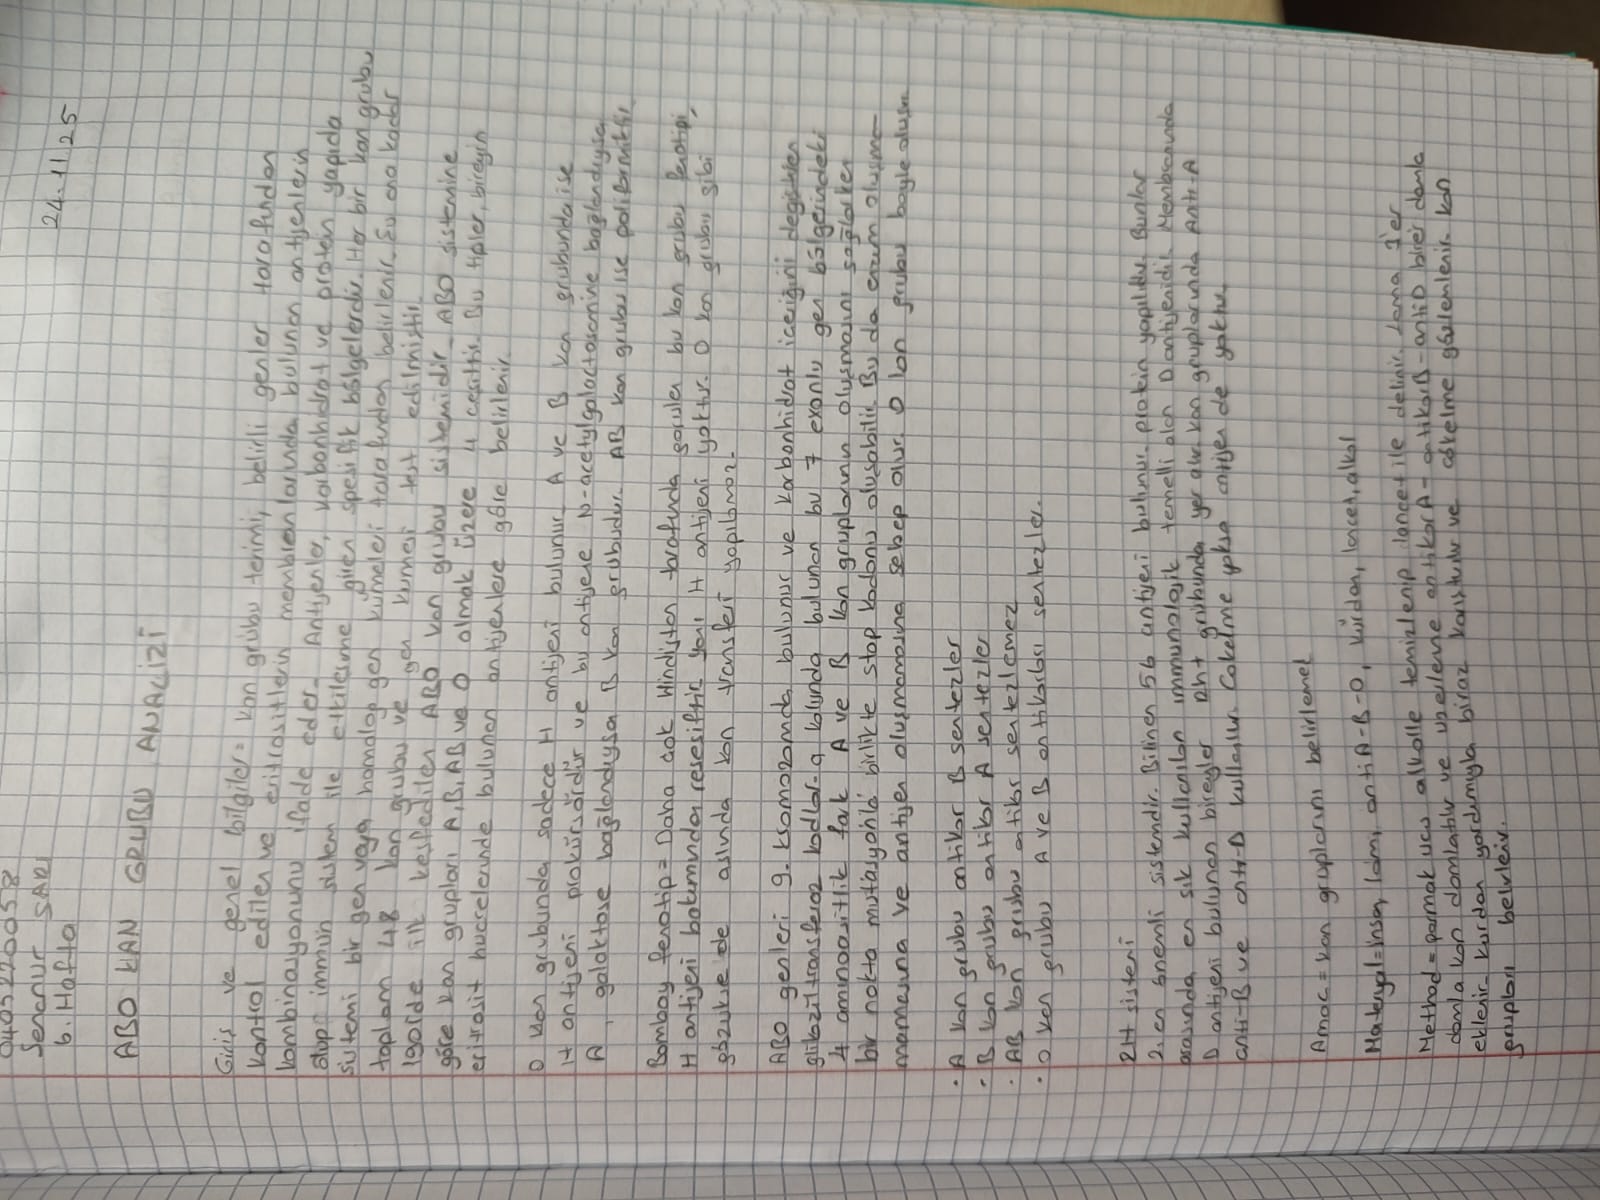 0405220058
Senanur SARI
6. Hafta
24.11.25
ABO KAN GRUBU ANALİZİ
Giriş ve genel bilgiler= kan grubu terimi, belirli genler tarafından
kontrol edilen ve eritrositlerin membranlarında bulunan antijenlerin
kombinasyonunu ifade eder. Antijenler, karbonhidrat ve protein yapıda
olup immün sistem ile etkileşime giren spesifik bölgelerdir. Her bir kan grubu
sistemi bir gen veya homolog gen kümeleri tarafından belirlenir. Şu ana kadar
toplam 48 kan grubu ve gen kümesi test edilmiştir.
1901de ilk keşfedilen ABO kan grubu sistemidir. ABO sistemine
göre kan grupları A,B,AB ve O olmak üzere 4 çeşittir. Bu tipler, bireyin
eritrosit hücrelerinde bulunan antijenlere göre belirlenir.
O kan grubunda sadece H antijeni bulunur. A ve B kan grubunda ise
H antijeni prokürsördür ve bu antijene N-acetylgalactosamine bağlandıysa
A, galaktose bağlandıysa B kan grubudur. AB kan grubu ise poliformiktir.
Bombay fenotip= Daha çok Hindistan tarafında görülen bu kan grubu fenotipi,
H antijeni bakımından resesiftir yani H antijeni yoktur. O kan grubu gibi
gözükse de aslında kan transferi yapılamaz.
ABO genleri 9. kromozomda bulunur ve karbonhidrat içeriğini değiştiren
glikoziltransferaz kodlar. q kolunda bulunan bu 7 exonlu gen bölgerindeki
4 aminoasitlik fark A ve B kan gruplarının oluşmasını sağlarken
bir nokta mutasyonla birlikte stop kodonu oluşabilir. Bu da enzim oluşma-
mamasına ve antijen oluşmamasına sebep olur. O kan grubu böyle oluşur.
• A kan grubu antikor B sentezler
• B kan grubu antikor A sentezler
• AB kan grubu antikor sentezlemez
• O kan grubu A ve B antikorları sentezler.
RH sistemi
2. en önemli sistemdir. Bilinen 56 antijeni bulunur, protein yapılıdır. Bunlar
arasında en sık kullanılan immunolojik temelli olan D antijenidir. Membranında
D antijeni bulunan bireyler Rh+ grubunda yer alır. Kan gruplarında Anti-A
anti-B ve anti-D kullanılır. Çökelme yoksa antijen de yoktur.
Amaç= kan gruplarını belirlemek
Materyal=insan, lam, anti A-B-D, kürdan, lancet, alkol
Method= parmak ucu alkolle temizlenip lancet ile delinir. Lama 3'er
damla kan damlatılır ve üzerlerine antikor A- antikor B- anti D birer damla
eklenir. kürdan yardımıyla biraz karıştırılır ve çökelme gözlemlenir. kan
grupları belirlenir.